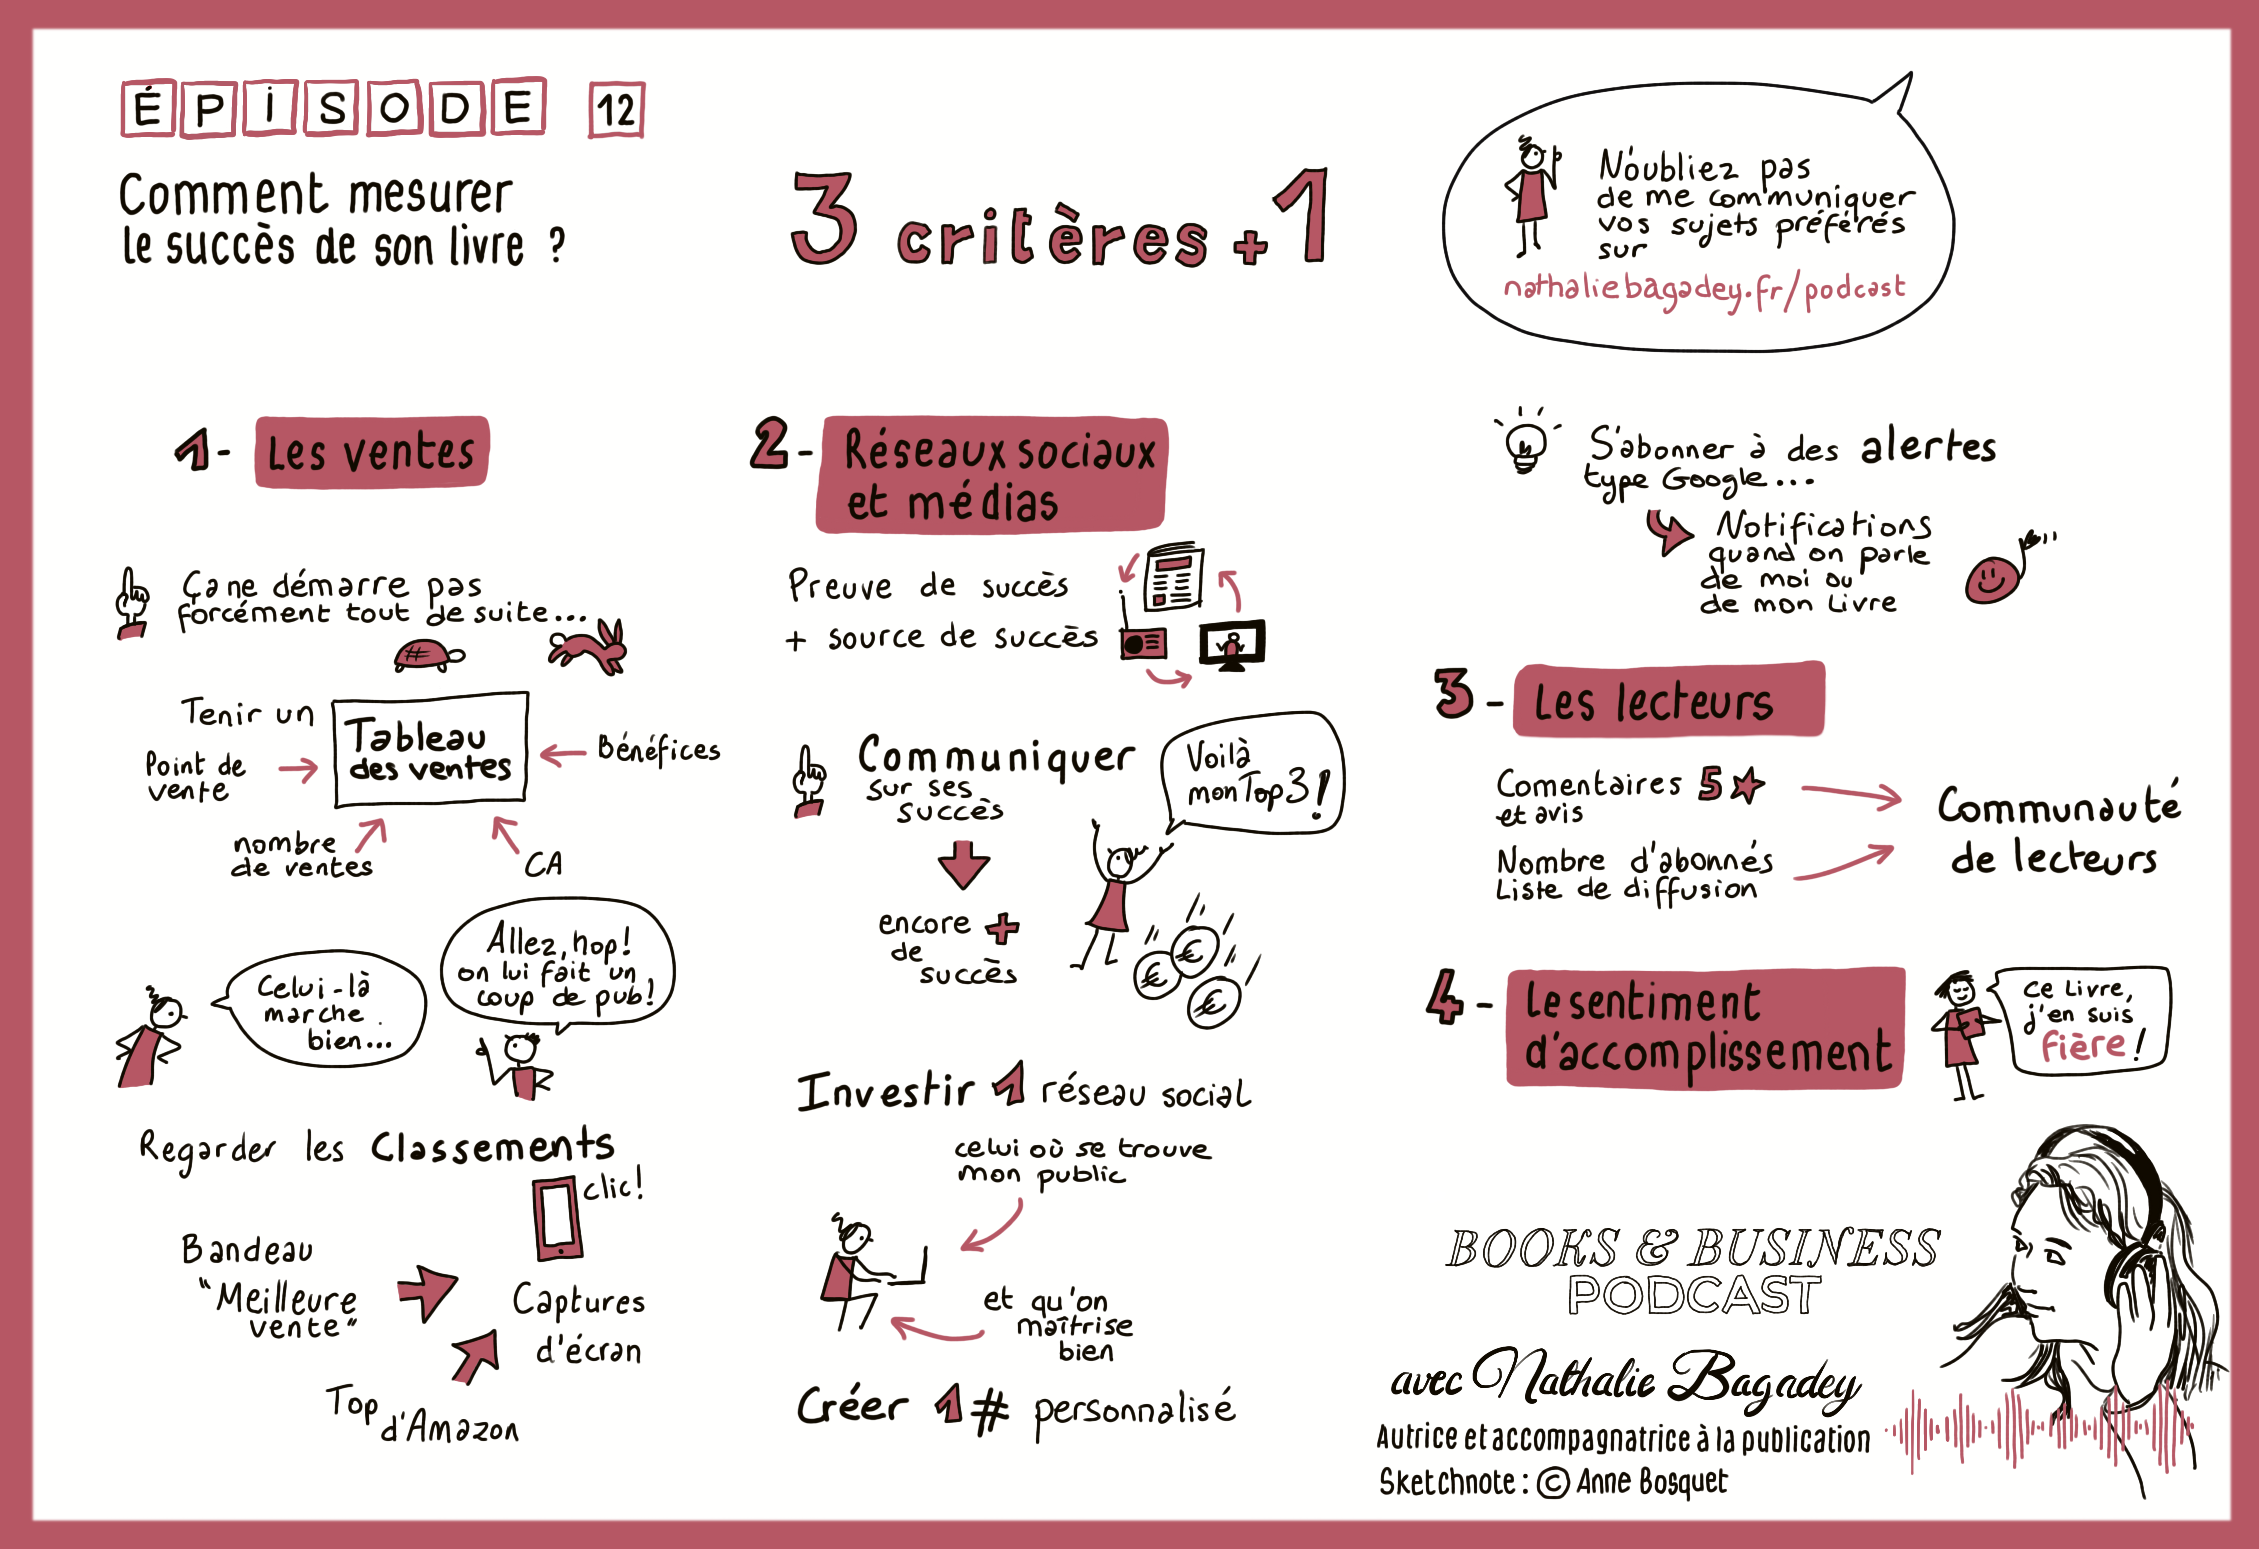 ÉPISODE 12
Comment mesurer
le succès de son livre ?
3 critères + 1
N'oubliez pas
de me communiquer
vos sujets préférés
sur
nathaliebagadey.fr/podcast
1- Les ventes
Ça ne démarre pas
forcément tout de suite...
Tenir un
Tableau
des ventes
Point de
vente
Bénéfices
nombre
de ventes
CA
Celui-là
marche
bien...
Allez, hop!
on lui fait un
coup de pub!
Regarder les Classements
clic!
Bandeau
"Meilleure
vente"
Captures
d'écran
Top
d'Amazon
2- Réseaux sociaux
et médias
Preuve de succès
+ source de succès
Communiquer
sur ses
succès
Voilà
mon Top 3!
encore +
de
succès
€
€
€
Investir 1 réseau social
celui où se trouve
mon public
et qu'on
maîtrise
bien
Créer 1 # personnalisé
S'abonner à des alertes
type Google...
Notifications
quand on parle
de moi ou
de mon livre
3- Les lecteurs
Comentaires 5 ★
et avis
Nombre d'abonnés
Liste de diffusion
Communauté
de lecteurs
4- Le sentiment
d'accomplissement
Ce livre,
j'en suis
fière!
BOOKS & BUSINESS
PODCAST
avec Nathalie Bagadey
Autrice et accompagnatrice à la publication
Sketchnote : © Anne Bosquet